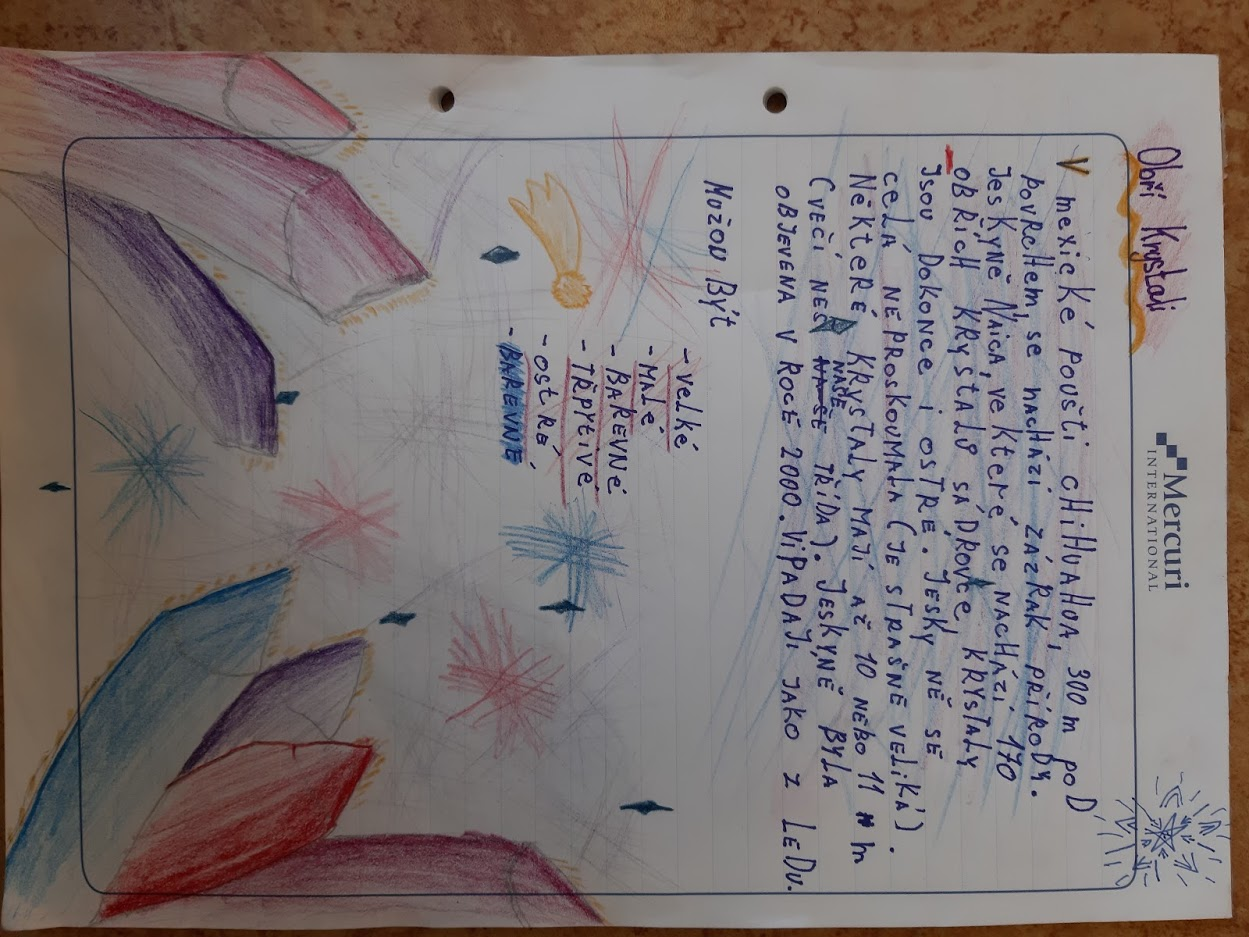 Obří Krystali
Mercuri
INTERNATIONAL
V mexické poušti cHiHUAHUA, 300 m poD
povrcHem, se nachází zázrak přírody.
Jeskyně Naica, ve které se nachází 170
obřích krystalů sádrovce. krystaly
Jsou Dokonce i ostré. Jesky ně se
celá neproskoumala (je strašně veliká).
Některé krystaly mají až 10 nebo 11 m
(večí než naše třída). Jeskyně byla
objevena v roce 2000. Vipadají jako z leDu.
Mužou Být
- velké
- malé
- Barevné
- třpytivé
- ostré
- Barevné